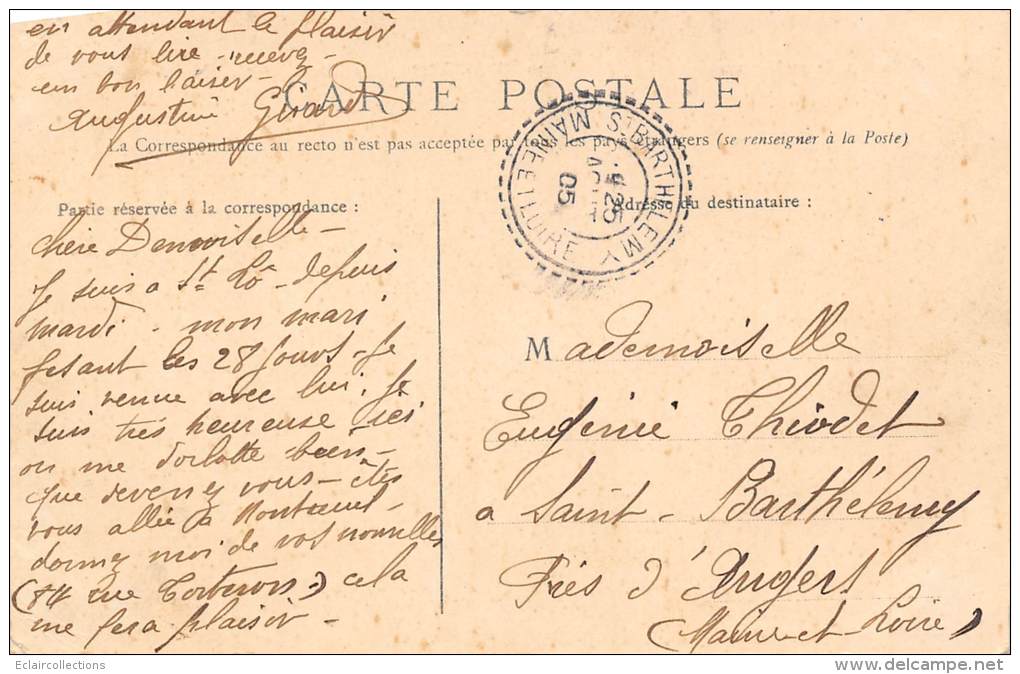 en attendant le plaisir
de vous lire - recevez -
un bon baiser -
Augustine Girard
CARTE POSTALE
La Correspondance au recto n'est pas acceptée par tous les pays étrangers (se renseigner à la Poste)
Partie réservée à la correspondance :
chère Demoiselle -
Je suis a St Lô - depuis
mardi - mon mari
fesant les 28 jours - Je
suis venue avec lui, Je
suis très heureuse ici
on me dorlotte bien -
que devenez vous - êtes
vous allée à Montreuil -
donnez moi de vos nouvelles
(84 rue ) cela
me fera plaisir -
ST BARTHELEMY
MAINE ET LOIRE
25
AOUT
05
Adresse du destinataire :
Mademoiselle
Eugénie Thiodet
a Saint - Barthélemy
Près d'Angers
(Maine-et-Loire)
Eclaircollections
www.delcampe.net